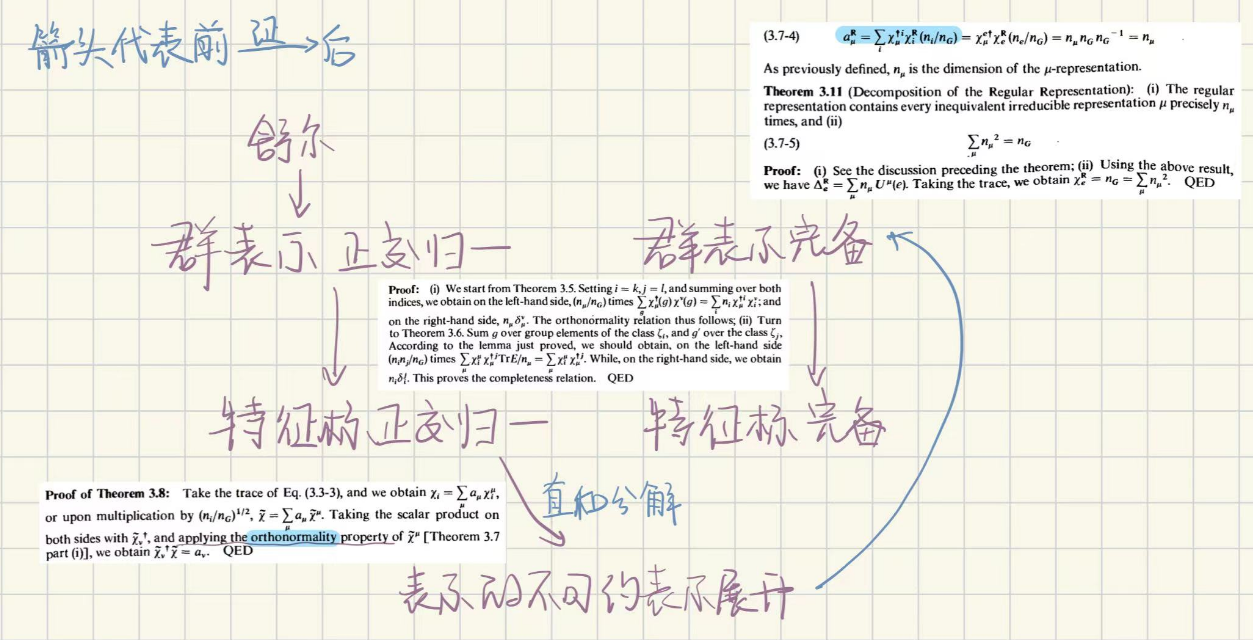 箭头代表前 证→ 后
(3.7-4) a_μ^R = ∑_i χ_μ^{†i} χ_i^R (n_i/n_G) = χ_μ^{e†} χ_e^R (n_e/n_G) = n_μ n_G n_G^{-1} = n_μ
As previously defined, n_μ is the dimension of the μ-representation.
Theorem 3.11 (Decomposition of the Regular Representation): (i) The regular
representation contains every inequivalent irreducible representation μ precisely n_μ
times, and (ii)
(3.7-5) ∑_μ n_μ² = n_G
Proof: (i) See the discussion preceding the theorem; (ii) Using the above result,
we have Δ_e^R = ∑_μ n_μ U^μ(e). Taking the trace, we obtain χ_e^R = n_G = ∑_μ n_μ². QED
舒尔
群表示 正交归一
群表示完备
Proof: (i) We start from Theorem 3.5. Setting i = k, j = l, and summing over both
indices, we obtain on the left-hand side, (n_μ/n_G) times ∑_g χ_μ^†(g) χ^ν(g) = ∑_i n_i χ_μ^{†i} χ_i^ν; and
on the right-hand side, n_μ δ_μ^ν. The orthonormality relation thus follows; (ii) Turn
to Theorem 3.6. Sum g over group elements of the class ζ_i, and g′ over the class ζ_j.
According to the lemma just proved, we should obtain, on the left-hand side
(n_i n_j/n_G) times ∑_μ χ_i^μ χ_μ^{†j} Tr E/n_μ = ∑_μ χ_i^μ χ_μ^{†j}. While, on the right-hand side, we obtain
n_i δ_i^j. This proves the completeness relation. QED
特征标正交归一
特征标完备
Proof of Theorem 3.8: Take the trace of Eq. (3.3-3), and we obtain χ_i = ∑_μ a_μ χ_i^μ,
or upon multiplication by (n_i/n_G)^{1/2}, χ̃ = ∑_μ a_μ χ̃^μ. Taking the scalar product on
both sides with χ̃_ν^†, and applying the orthonormality property of χ̃^μ [Theorem 3.7
part (i)], we obtain χ̃_ν^† χ̃ = a_ν. QED
直和分解
表示的不可约表示展开